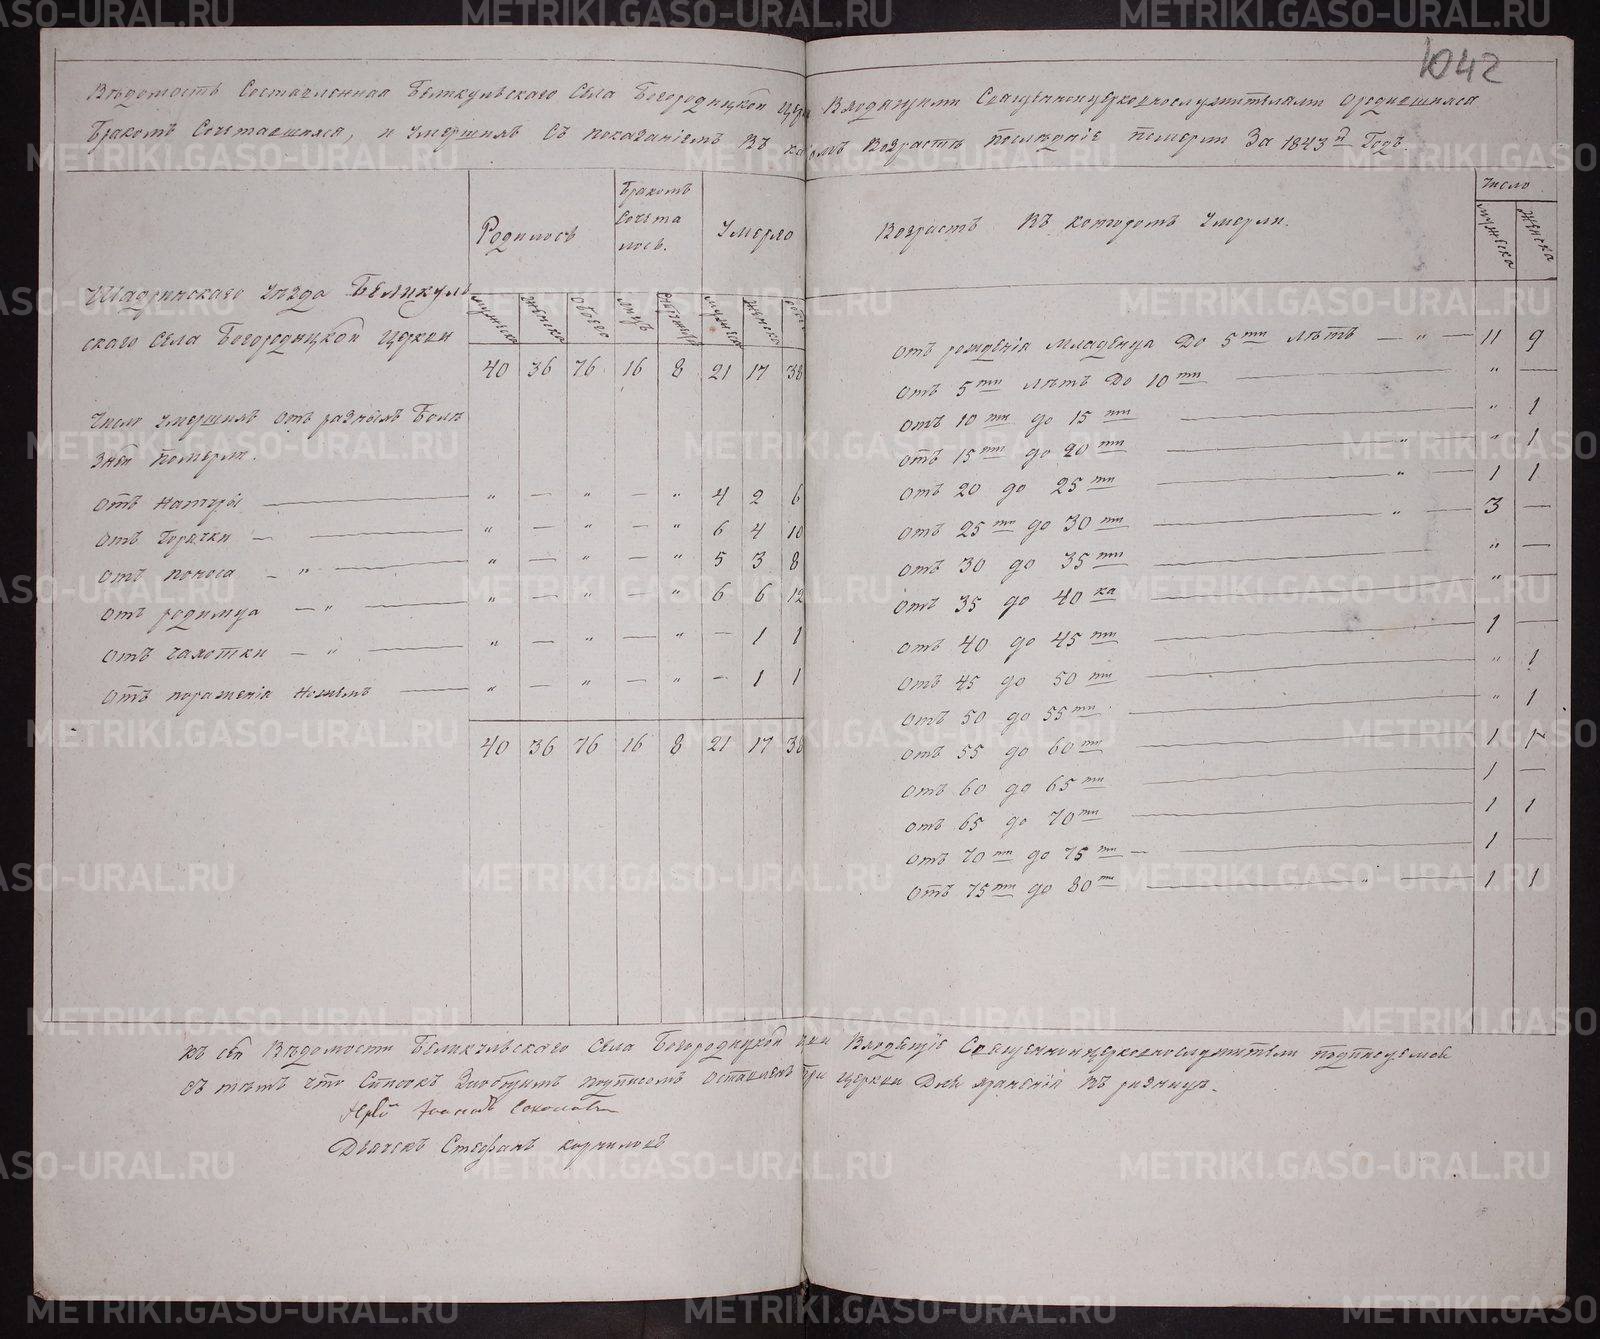 1042
Вѣдомость Составленная Беликульскаго Села Богородицкой церк
Входящими Священноцерковнослужителями Ородившихся
Бракомъ Сочетавшихся, и Умершихъ Съ показаніемъ Въ ка
омъ Возрастѣ Послѣдніе Померли За 1843й Годъ.
Родилось
Бракомъ
Сочета
лось.
Умерло
Шадринскаго Уѣзда Беликуль
скаго Села Богородицкой Церкви
мужеска Женска Обоего мужеска Женска
40 36 76 16 8 21 17 38
Число умершихъ Отъ разныхъ Болѣ
зней померли.
Отъ Натуры — " — " — " 4 2 6
Отъ Горячки — " — " — " 6 4 10
Отъ поноса — " — " — " — " 5 3 8
Отъ родимца — " — " — " — " 6 6 12
Отъ чахотки — " — " — " — " — 1 1
Отъ пораженія Ножемъ — " — " — " — 1 1
40 36 76 16 8 21 17 38
Возрастъ Въ которомъ Умерли.
Число
мужеска
Женска
Отъ рожденія Младенца До 5ти Лѣтъ — " — 11 9
Отъ 5ти Лѣтъ До 10ти — " —
Отъ 10ти до 15ти — " 1
Отъ 15ти до 20ти — " — " 1
Отъ 20 до 25ти — " — 1 1
Отъ 25ти до 30ти — " — 3 —
Отъ 30 до 35ти — " —
Отъ 35 до 40ка — " —
Отъ 40 до 45ти — 1 —
Отъ 45 до 50ти — " 1
Отъ 50 до 55ти — " 1
Отъ 55 до 60ти — 1 1
Отъ 60 до 65ти — 1 —
Отъ 65 до 70ти — 1 1
Отъ 70ти до 75ти — 1 —
Отъ 75ти до 80ти — " — 1 1
Къ сей Вѣдомости Беликульскаго Села Богородицкой Священноцерковнослужители подписуемся
Въ томъ что Списокъ подписомъ Оставленъ При Церкви Для храненія Въ ризницѣ.
Іерей Соколовъ
Дьячекъ Стефанъ Корниловъ
METRIKI.GASO-URAL.RU